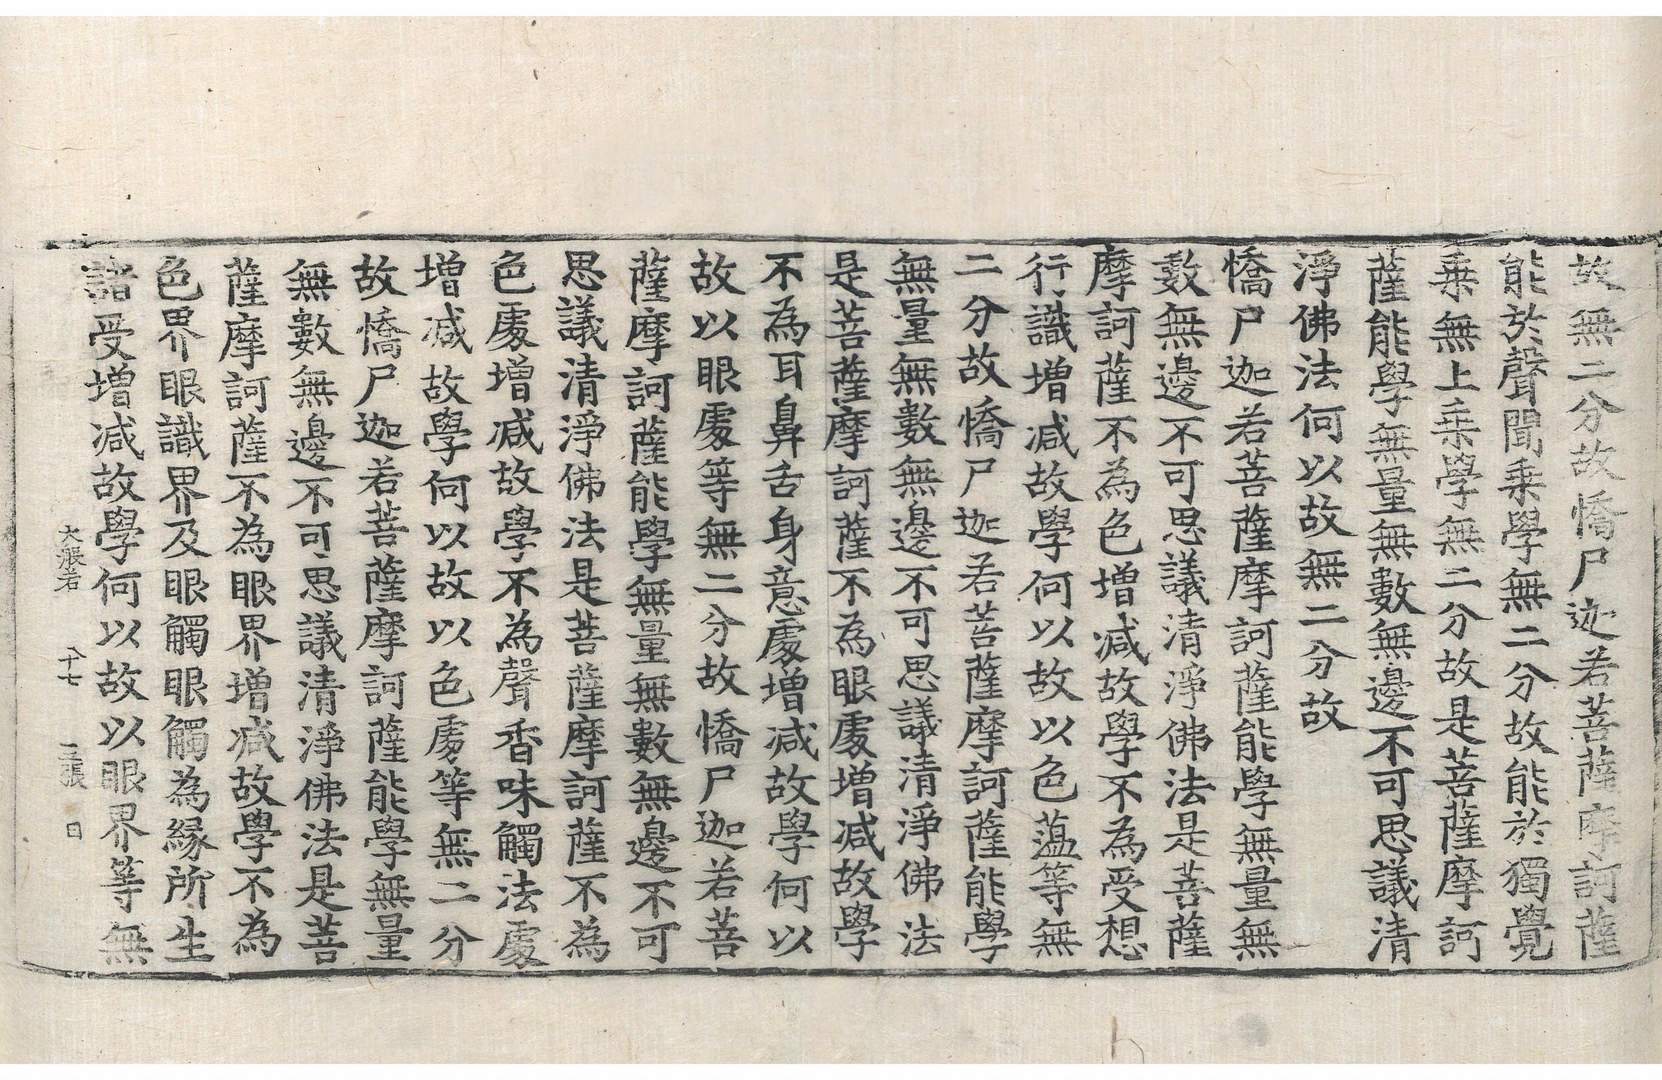 故無二分故憍尸迦若菩薩摩訶薩
能於聲聞乗學無二分故能於獨覺
乗無上乗學無二分故是菩薩摩訶
薩能學無量無數無邊不可思議清
淨佛法何以故無二分故
憍尸迦若菩薩摩訶薩能學無量無
數無邊不可思議清淨佛法是菩薩
摩訶薩不為色增减故學不為受想
行識增减故學何以故以色蕰等無
二分故憍尸迦若菩薩摩訶薩能學
無量無數無邊不可思議清淨佛法
是菩薩摩訶薩不為眼處增减故學
不為耳鼻舌身意處增减故學何以
故以眼處等無二分故憍尸迦若菩
薩摩訶薩能學無量無數無邊不可
思議清淨佛法是菩薩摩訶薩不為
色處增减故學不為聲香味觸法處
增减故學何以故以色處等無二分
故憍尸迦若菩薩摩訶薩能學無量
無數無邊不可思議清淨佛法是菩
薩摩訶薩不為眼界增减故學不為
色界眼識界及眼觸眼觸為縁所生
諸受增减故學何以故以眼界等無
大般若 八十七 三張 日